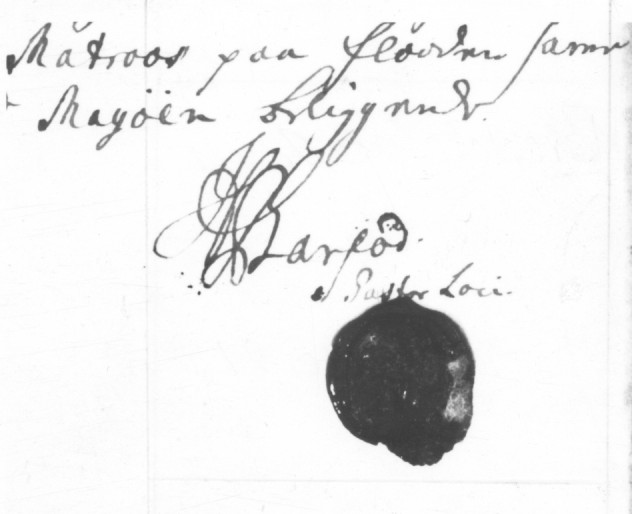 Matroos paa flooden samt
Magöen beliggende.
Barfod.
Pastor Loci.